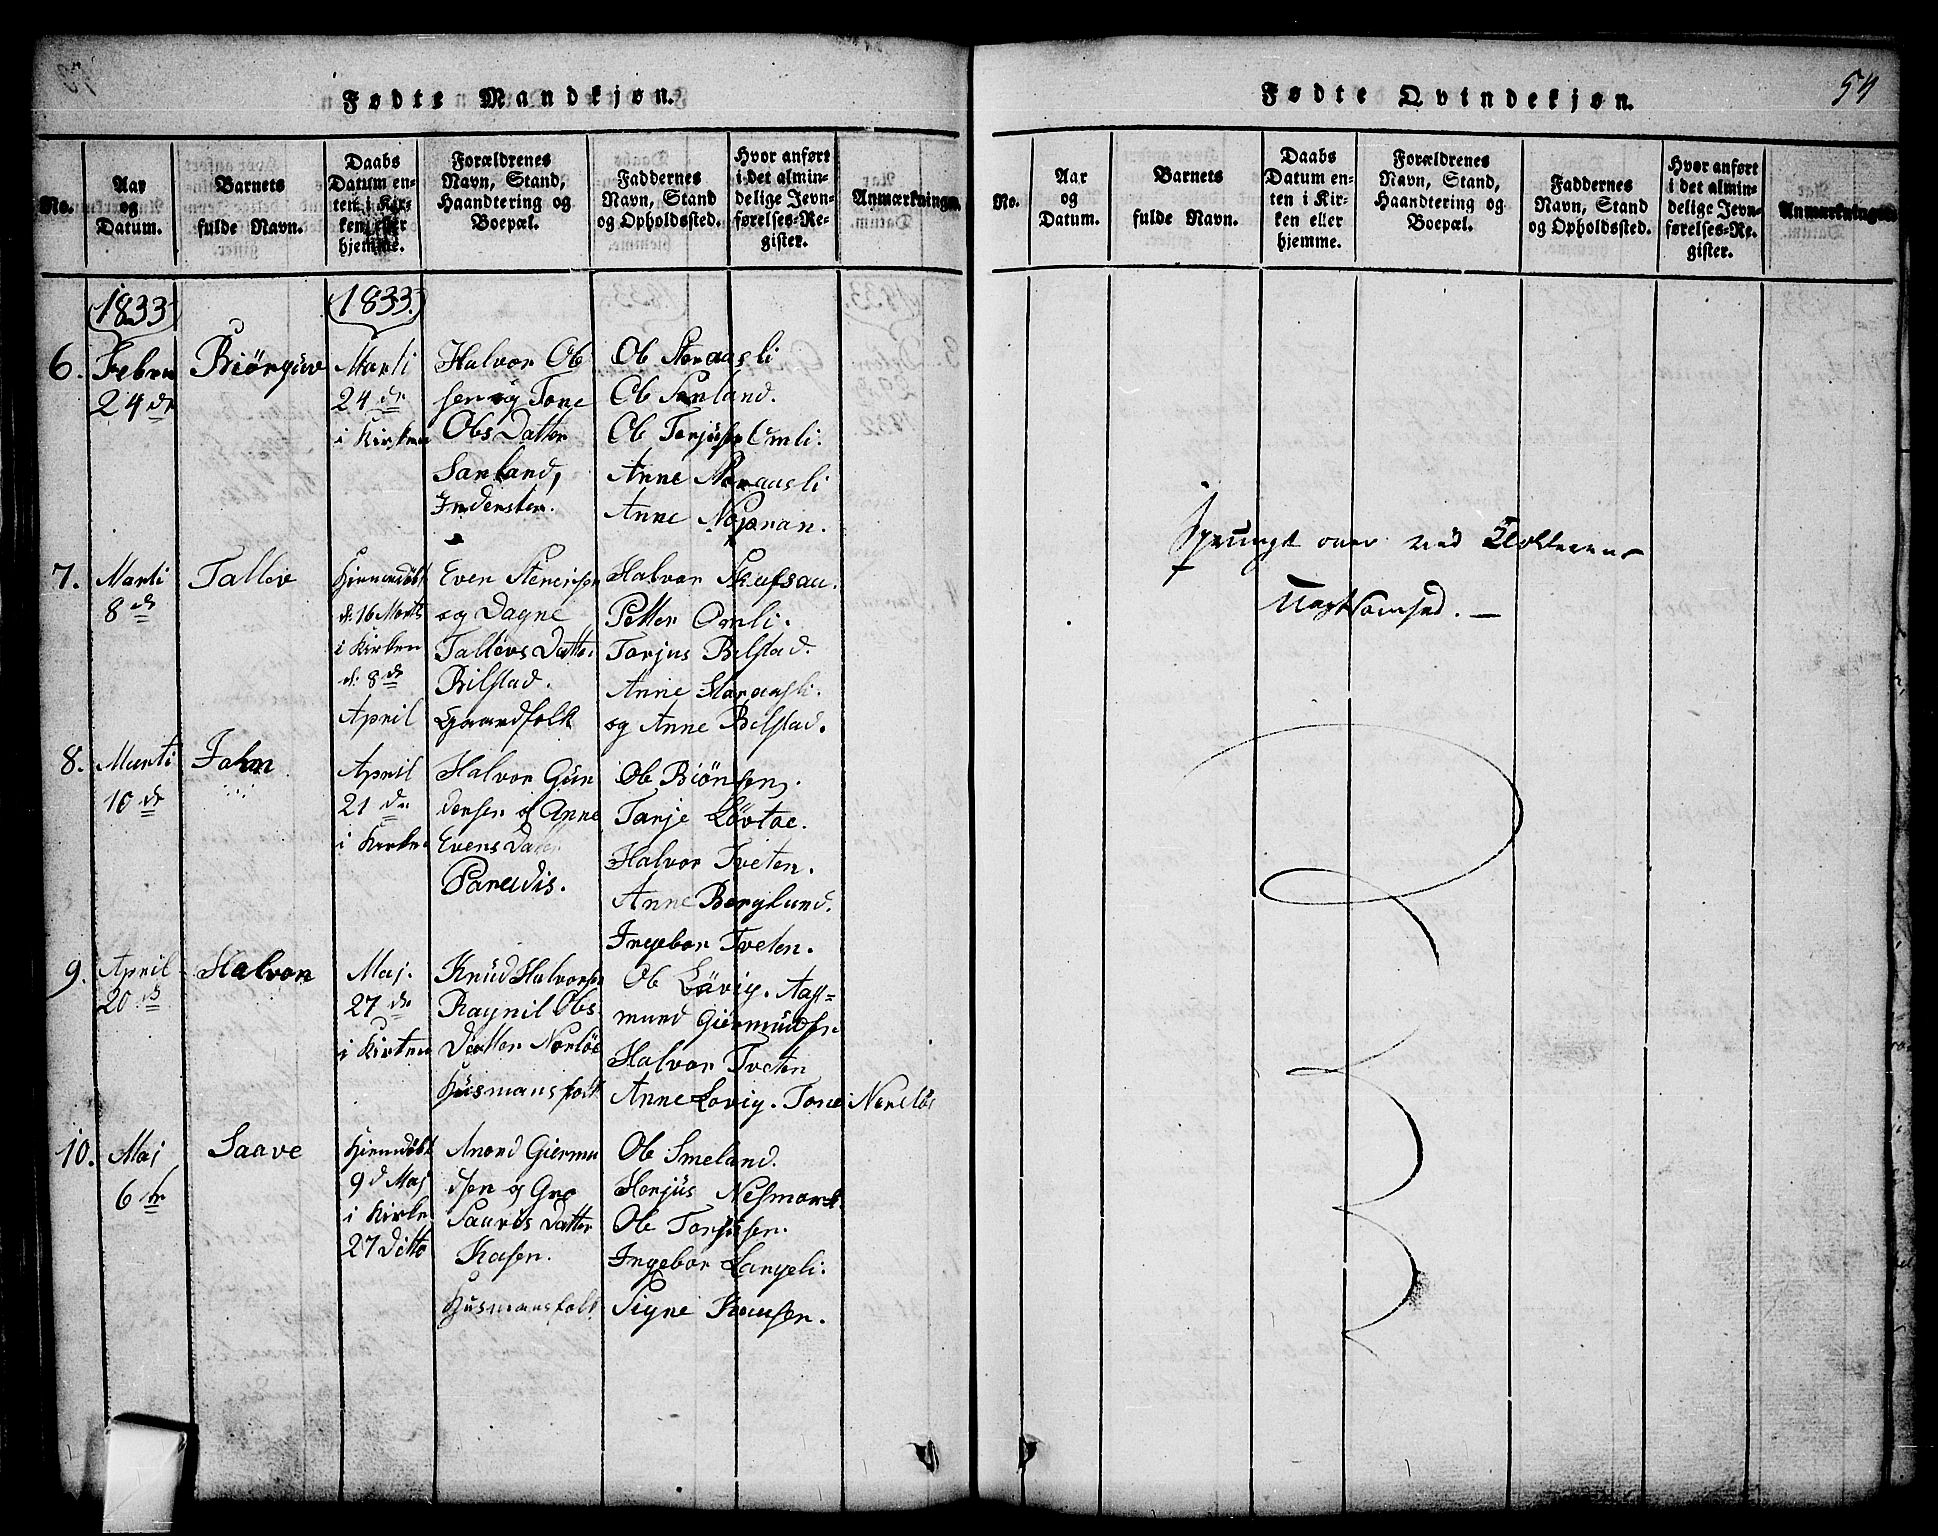 Fødte Mandkjøn.
No.
Aar
og
Datum.
Barnets
fulde Navn.
Daabs
Datum en-
ten i Kir-
ken eller
hjemme.
Forældrenes
Navn, Stand,
Haandtering og
Boepæl.
Faddernes
Navn, Stand
og Opholdssted.
Hvor anført
i det almin-
delige Jevn-
førelses-Re-
gister.
Anmærkninger.
1833
1833.
6.
Febru
24 de
Biørguv
Marti
24 de
i Kirken
Halvor Ob
sen og Tone
Obs Datter
Sanland,
Inderster.
Ob Storaasli
Ob Sanland.
Ob Torjusen Omli.
Anne Storaasli
Anne
7.
Marti
8 de
Tallev
Hjemmedøbt
d. 16 Marti
i Kirken
d. 8 de
April
Even Stenersen
og Dagne
Tallevs Datter
Bilstad.
Gaardfolk
Halvor Skafsaa.
Petter Omli.
Torjus Bilstad.
Anne Storaasli.
og Anne Bilstad.
8.
Marti
10 de
John
April
21 de
i Kirken
Halvor Gun
dersen og Anne
Evens Datter
Paradis.
Ob Biønsen,
Tarje Løvtae.
Halvor Tveten.
Anne Berglund.
Ingebor Tveten.
9.
April
20 de
Halvor
Maj.
27 de
i Kirken
Knud Halvorsen
Ragnil Obs
Datter Norløs
Husmansfolk
Ob Løvig. Aas-
mund Giermundsen
Halvor Tveten
Anne Lovig. Tone Norløs
10.
Maj
6 te
Saave
Hjemmedøbt
9 d Maj
i Kirken
27 Ditto
Anond Giermu
dsen og Gro
Saaves Datter
Kasen.
Husmansfolk
Ob Smeland.
Torjus Nesmark.
Ob Torjusen.
Ingebor Langeli.
Signe
Fødte Qvindekjøn.
54
No.
Aar
og
Datum.
Barnets
fulde Navn.
Daabs
Datum en-
ten i Kir-
ken eller
hjemme.
Forældrenes
Navn, Stand,
Haandtering og
Boepæl.
Faddernes
Navn, Stand
og Opholdssted.
Hvor anført
i det almin-
delige Jevn-
førelses-Re-
gister.
Anmærkninger
Sprungt over ved Klokkerens
Uagtsomhed. —